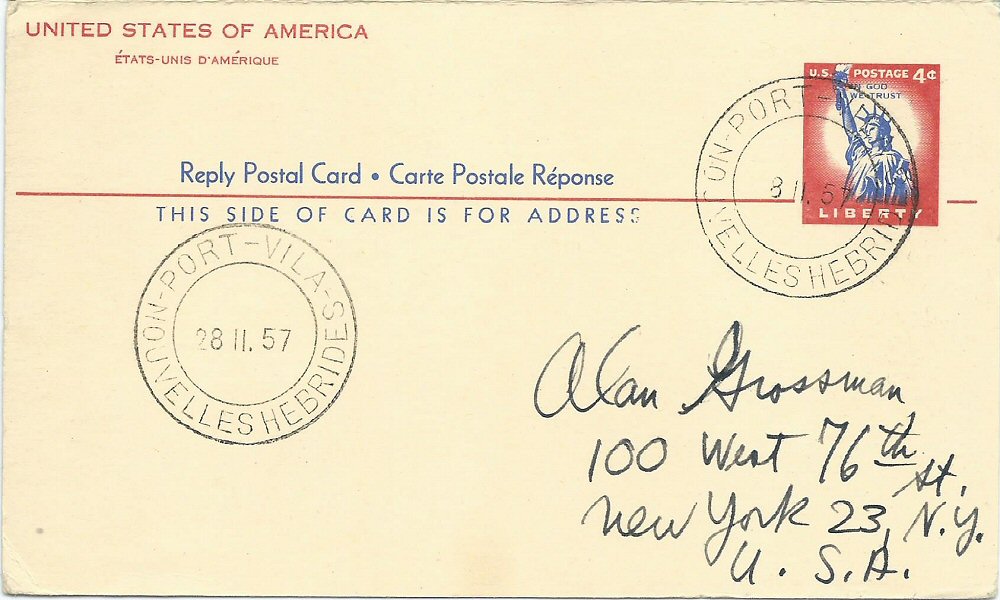 UNITED STATES OF AMERICA
ÉTATS-UNIS D'AMÉRIQUE
U.S. POSTAGE 4¢
IN GOD
WE TRUST
LIBERTY
Reply Postal Card • Carte Postale Réponse
THIS SIDE OF CARD IS FOR ADDRESS
PORT-VILA-
8 II. 57
NOUVELLES HEBRIDES
PORT-VILA-
28 II. 57
NOUVELLES HEBRIDES
Alan Grossman
100 West 76th St.
New York 23, N.Y.
U. S. A.